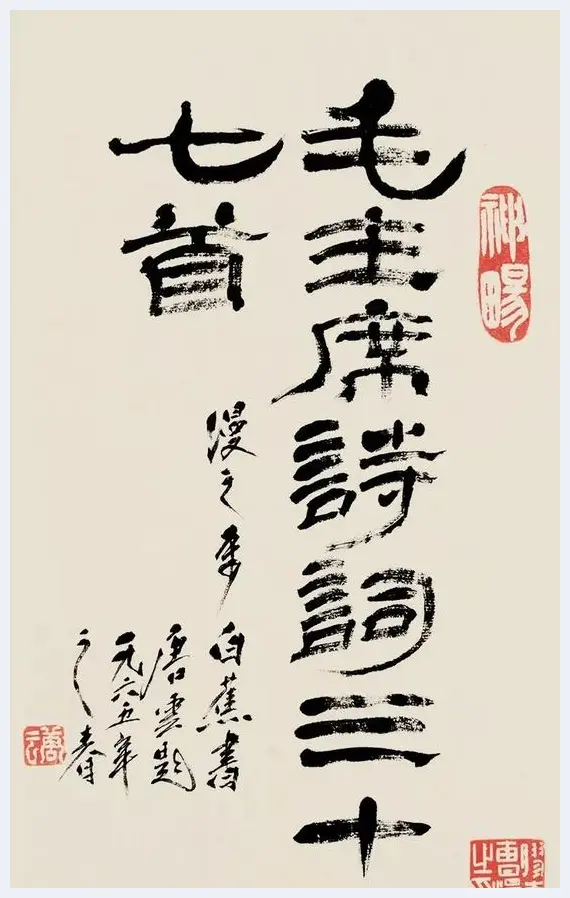 毛主席詩詞三十
七首
漫之 白蕉書
唐雲題
一九六五年
之春